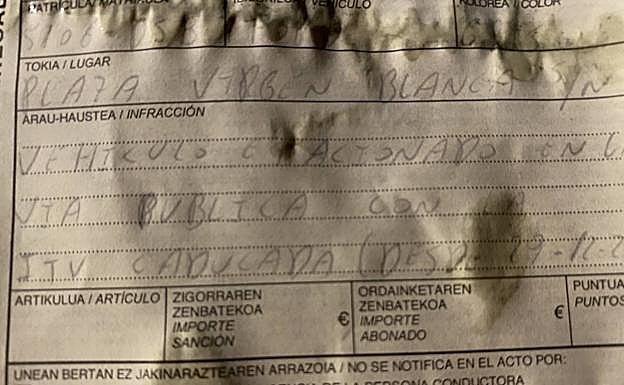 MATRÍCULA / MATRIKULA
KOLOREA / COLOR
TOKIA / LUGAR
PLAZA VIRGEN BLANCA S/N
ARAU-HAUSTEA / INFRACCIÓN
VEHICULO ESTACIONADO EN LA
VIA PUBLICA CON LA
ITV CADUCADA (DESDE 29-12-2
ARTIKULUA / ARTÍCULO
ZIGORRAREN
ZENBATEKOA
IMPORTE
SANCIÓN
€
ORDAINKETAREN
ZENBATEKOA
IMPORTE
ABONADO
€
PUNTUA
PUNTOS
UNEAN BERTAN EZ JAKINARAZTEAREN ARRAZOIA / NO SE NOTIFICA EN EL ACTO POR:
DE LA PERSONA CONDUCTORA